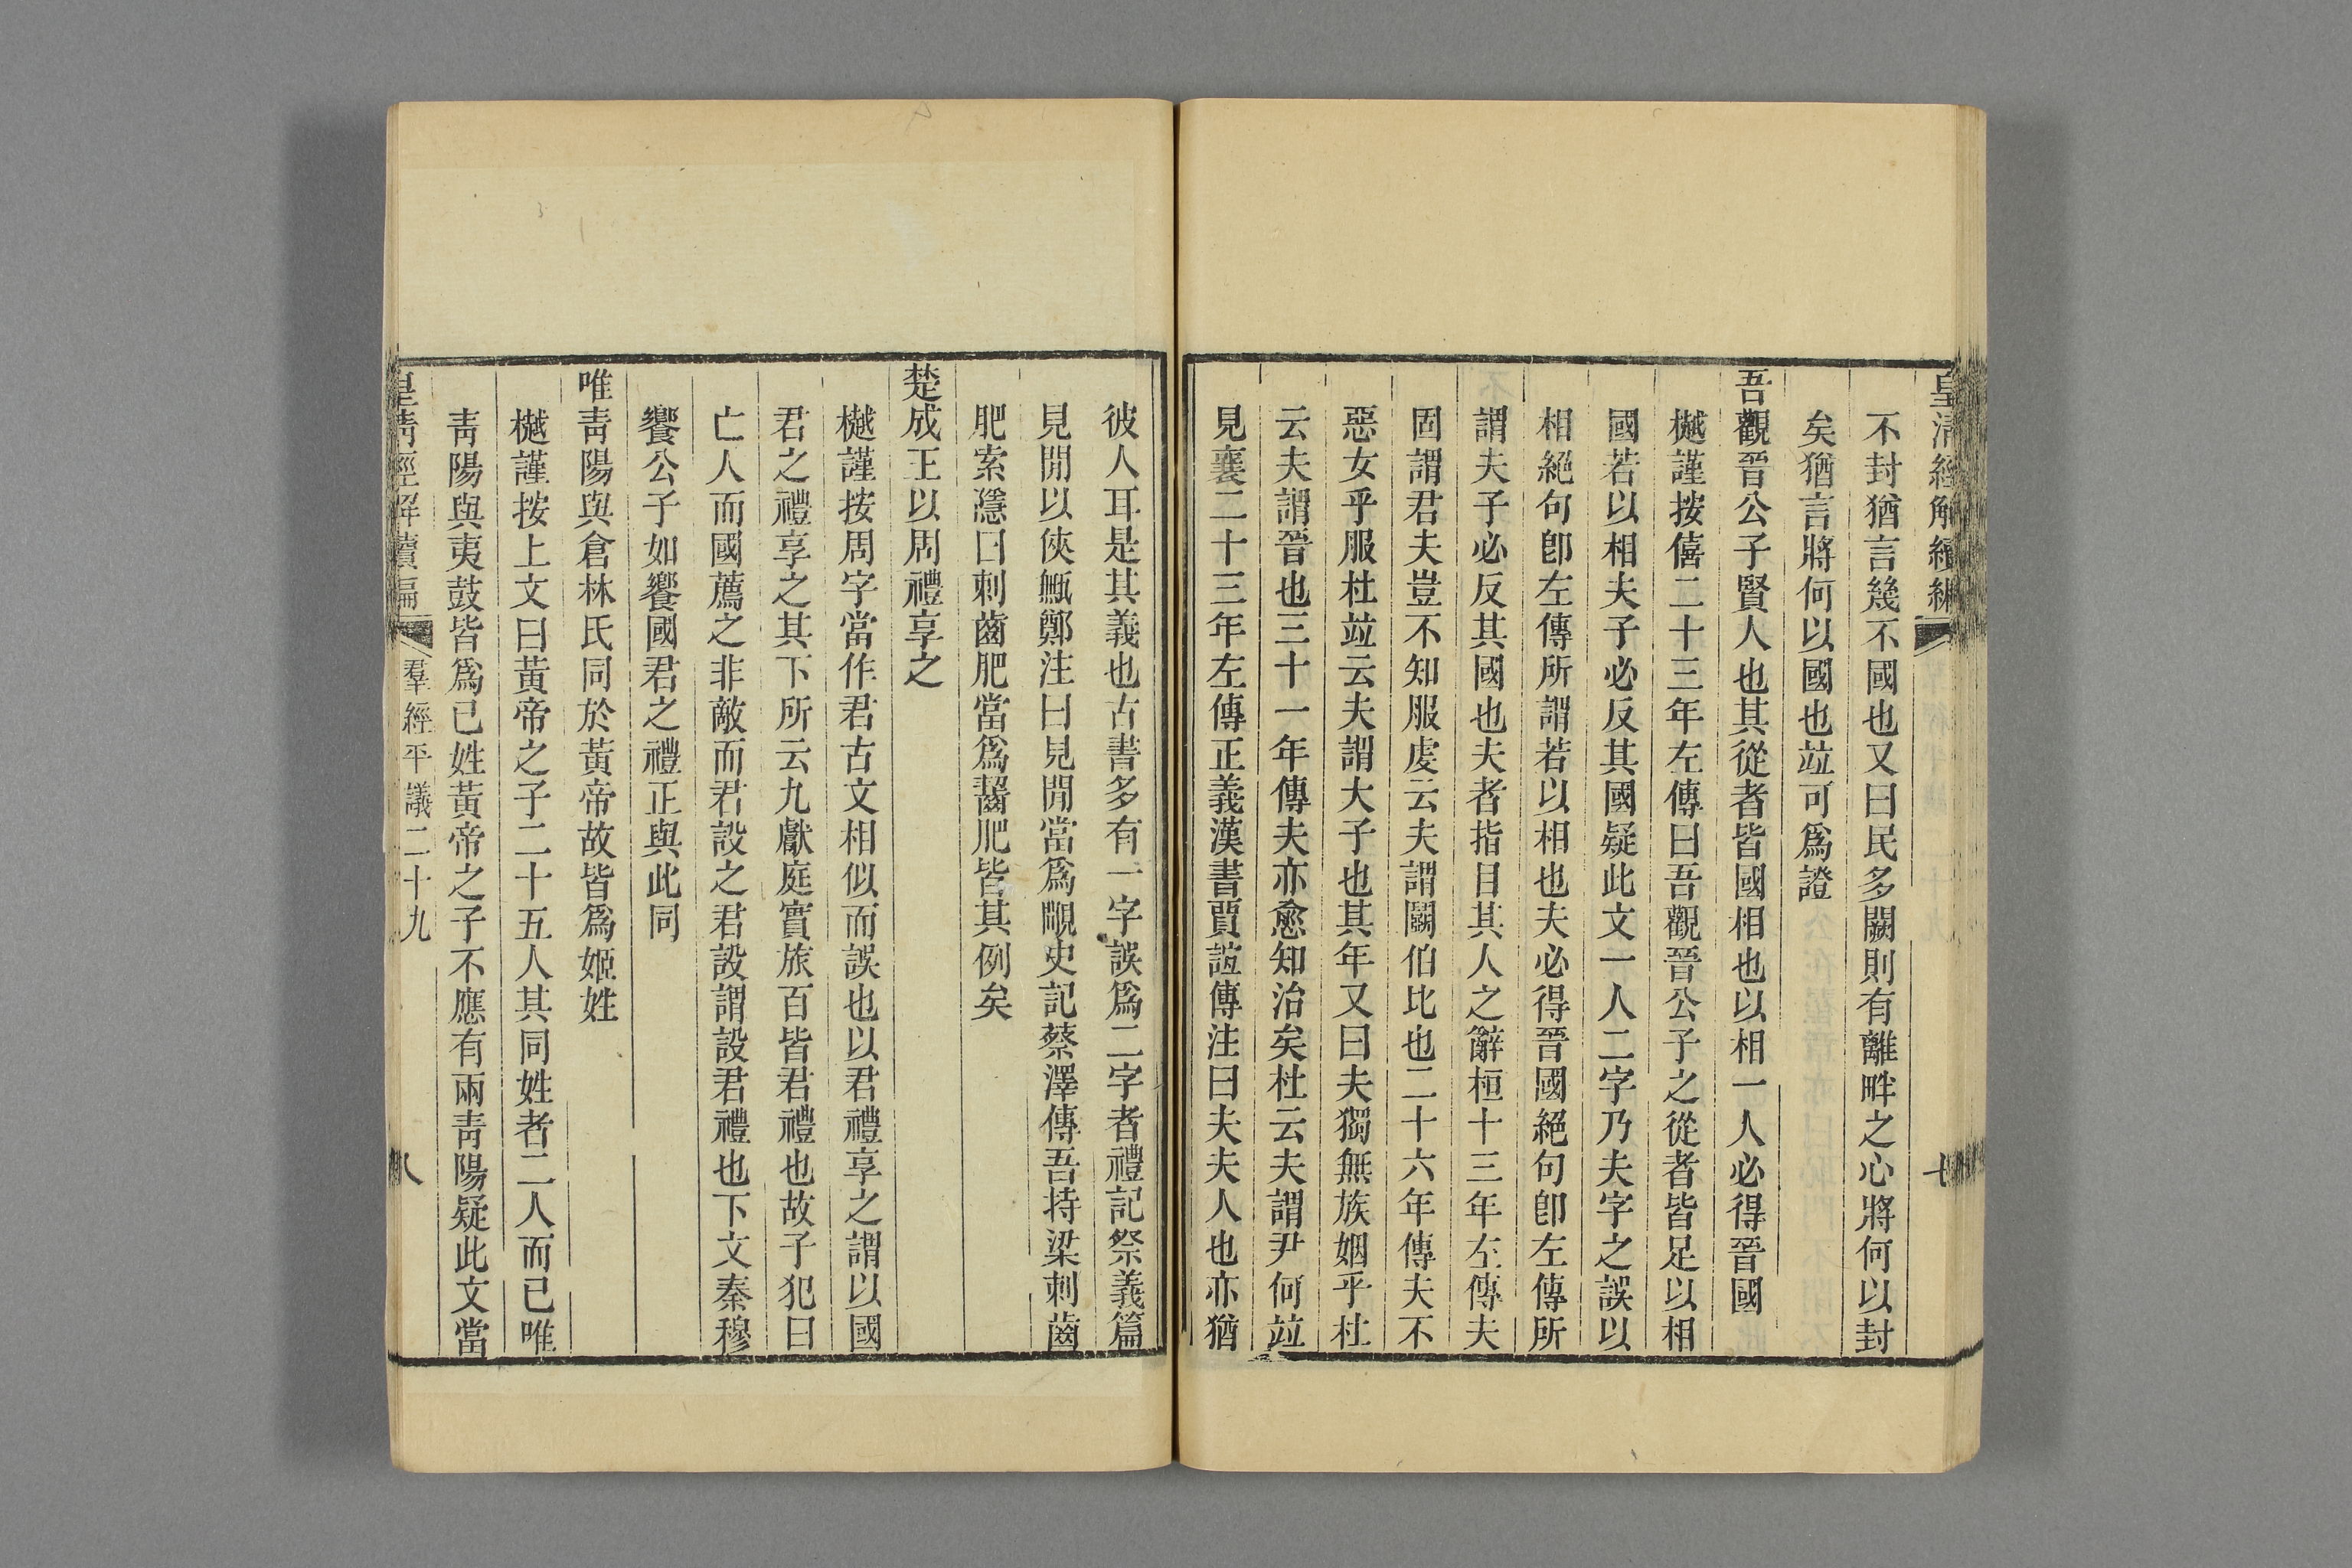 皇清經解續編
七
不封猶言幾不國也又曰民多闕則有離畔之心將何以封
矣猶言將何以國也竝可爲證
吾觀晉公子賢人也其從者皆國相也以相一人必得晉國
樾謹按僖二十三年左傳曰吾觀晉公子之從者皆足以相
國若以相夫子必反其國疑此文一人二字乃夫字之誤以
相絕句卽左傳所謂若以相也夫必得晉國絕句卽左傳所
謂夫子必反其國也夫者指目其人之辭桓十三年左傳夫
固謂君夫豈不知服虔云夫謂鬬伯比也二十六年傳夫不
惡女乎服杜竝云夫謂大子也其年又曰夫獨無族姻乎杜
云夫謂晉也三十一年傳夫亦愈知治矣杜云夫謂尹何竝
見襄二十三年左傳正義漢書賈誼傳注曰夫夫人也亦猶
彼人耳是其義也古書多有一字誤爲二字者禮記祭義篇
見閒以俠甒鄭注曰見閒當爲覸史記蔡澤傳吾持梁刺齒
肥索隱曰刺齒肥當爲齧肥皆其例矣
楚成王以周禮享之
樾謹按周字當作君古文相似而誤也以君禮享之謂以國
君之禮享之其下所云九獻庭實旅百皆君禮也故子犯曰
亡人而國薦之非敵而君設之君設謂設君禮也下文秦穆
饗公子如饗國君之禮正與此同
唯靑陽與倉林氏同於黃帝故皆爲姬姓
樾謹按上文曰黃帝之子二十五人其同姓者二人而已唯
靑陽與夷鼓皆爲己姓黃帝之子不應有兩靑陽疑此文當
皇淸經解續編
羣經平議二十九
八